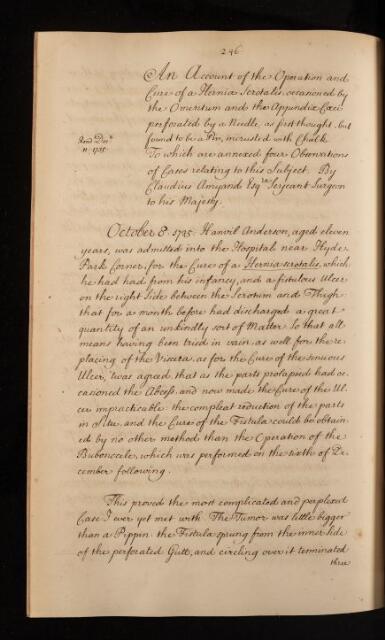 246
An Account of the Operation and
Cure of a Hernia Scrotalis, occasioned by
the Omentum and the Appendix Cæci
perforated by a Needle, as first thought, but
found to be a Pin, incrusted with Chalk
Read Decr.
11. 1735.
To which are annexed four Observations
of Cases relating to this Subject. By
Claudius Amyand Esqr. Serjeant Surgeon
to his Majesty.
October 8. 1735. Hanvil Anderson, aged eleven
years, was admitted into the Hospital near Hyde
Park Corner, for the Cure of a Hernia scrotalis, which
he had had from his infancy, and a fistulous Ulcer
on the right Side between the Scrotum and Thigh
that for a month before had discharged a great
quantity of an unkindly sort of Matter. So that all
means having been tried in vain, as well for the re-
placing of the Viscera, as for the Cure of the sinuous
Ulcer, 'twas agreed, that as the parts prolapsed had oc
casioned the Abcess, and now made the Cure of the Ul-
cer impracticable, the compleat reduction of the parts
in Situ, and the Cure of the Fistula could be obtain-
ed by no other method than the Operation of the
Bubonocele, which was performed on the sixth of De-
cember following.
This proved the most complicated and perplexed
Case I ever yet met with. The Tumor was little bigger
than a Pippin. the Fistula sprung from the inner side
of the perforated Gutt, and circling over it terminated
three